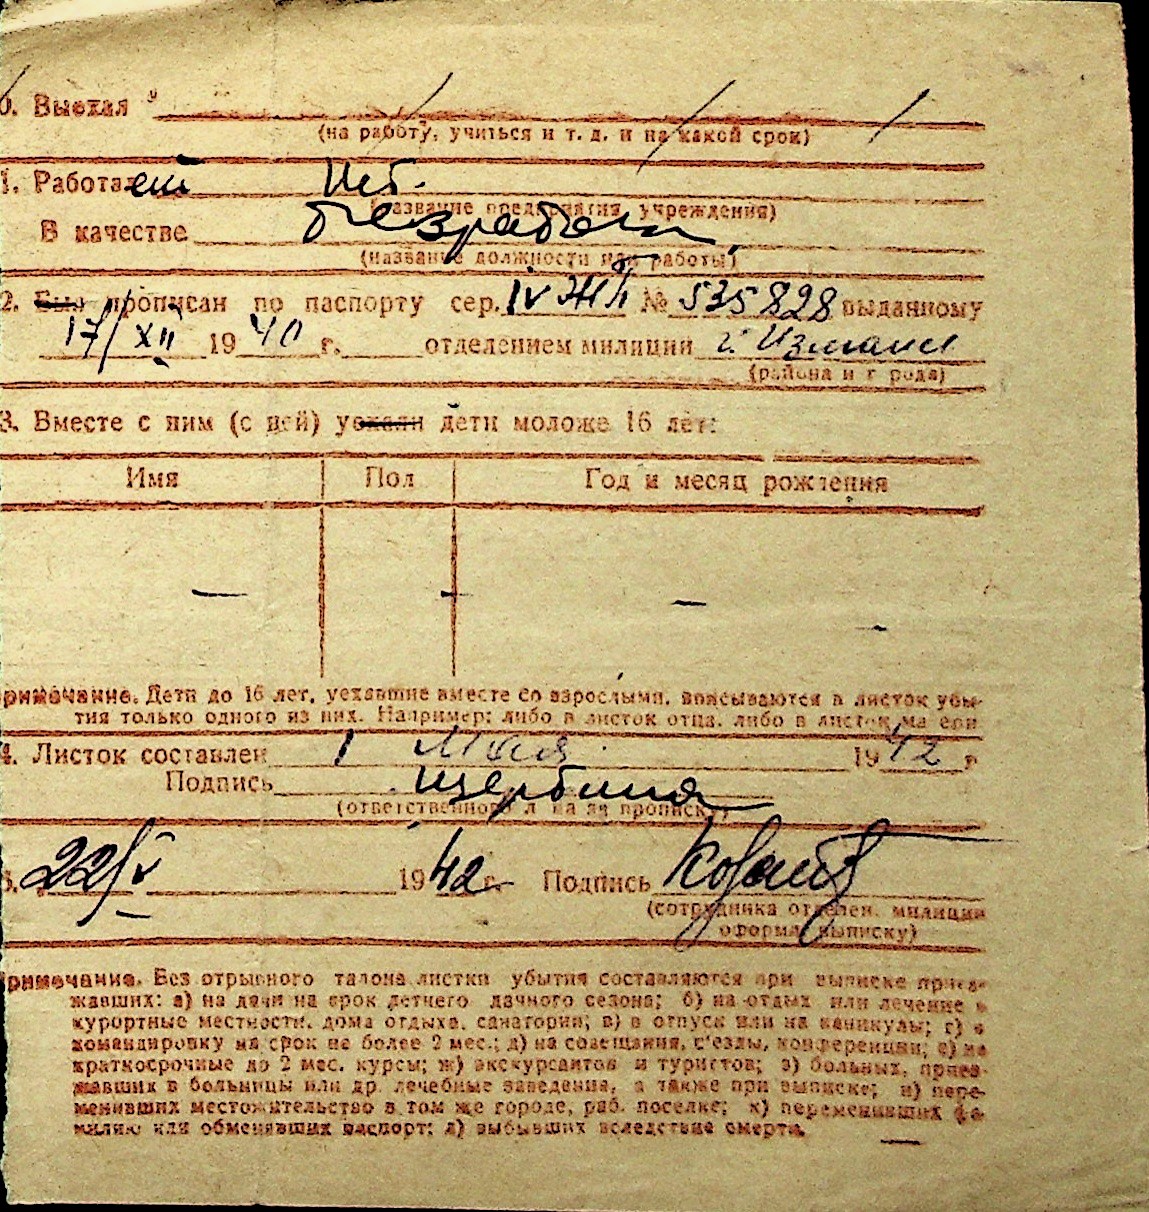 0. Выехал
(на работу, учиться и т. д. и на какой срок)
1. Работает Нет.
(название предприятия, учреждения)
В качестве безработн.
(название должности или работы)
2. Был прописан по паспорту сер. IV № 535828 выданному
17/XII 1940 г. отделением милиции г. Измаил
(района и города)
3. Вместе с ним (с ней) уехали дети моложе 16 лет:
Имя Пол Год и месяц рождения
— — —
римечание. Дети до 16 лет, уехавшие вместе со взрослыми, вписываются в листок убы-
тия только одного из них. Например: либо в листок отца, либо в листок матери
4. Листок составлен 1 Мая 1942 г.
Подпись Щербина
(ответственного за прописку)
22/V 1942 г. Подпись
(сотрудника отделен. милиции
оформ. выписку)
римечание. Без отрывного талона листки убытия составляются при выписке приез-
жавших: а) на дачи на срок летнего дачного сезона; б) на отдых или лечение в
курортные местности, дома отдыха, санатории; в) в отпуск или на каникулы; г) в
командировку на срок не более 2 мес.; д) на совещания, с'езды, конференции; е) на
краткосрочные до 2 мес. курсы; ж) экскурсантов и туристов; з) больных, приез-
жавших в больницы или др. лечебные заведения, а также при выписке; и) пере-
менивших местожительство в том же городе, раб. поселке; к) переменивших фа-
милию или обменявших паспорт; л) выбывших вследствие смерти.